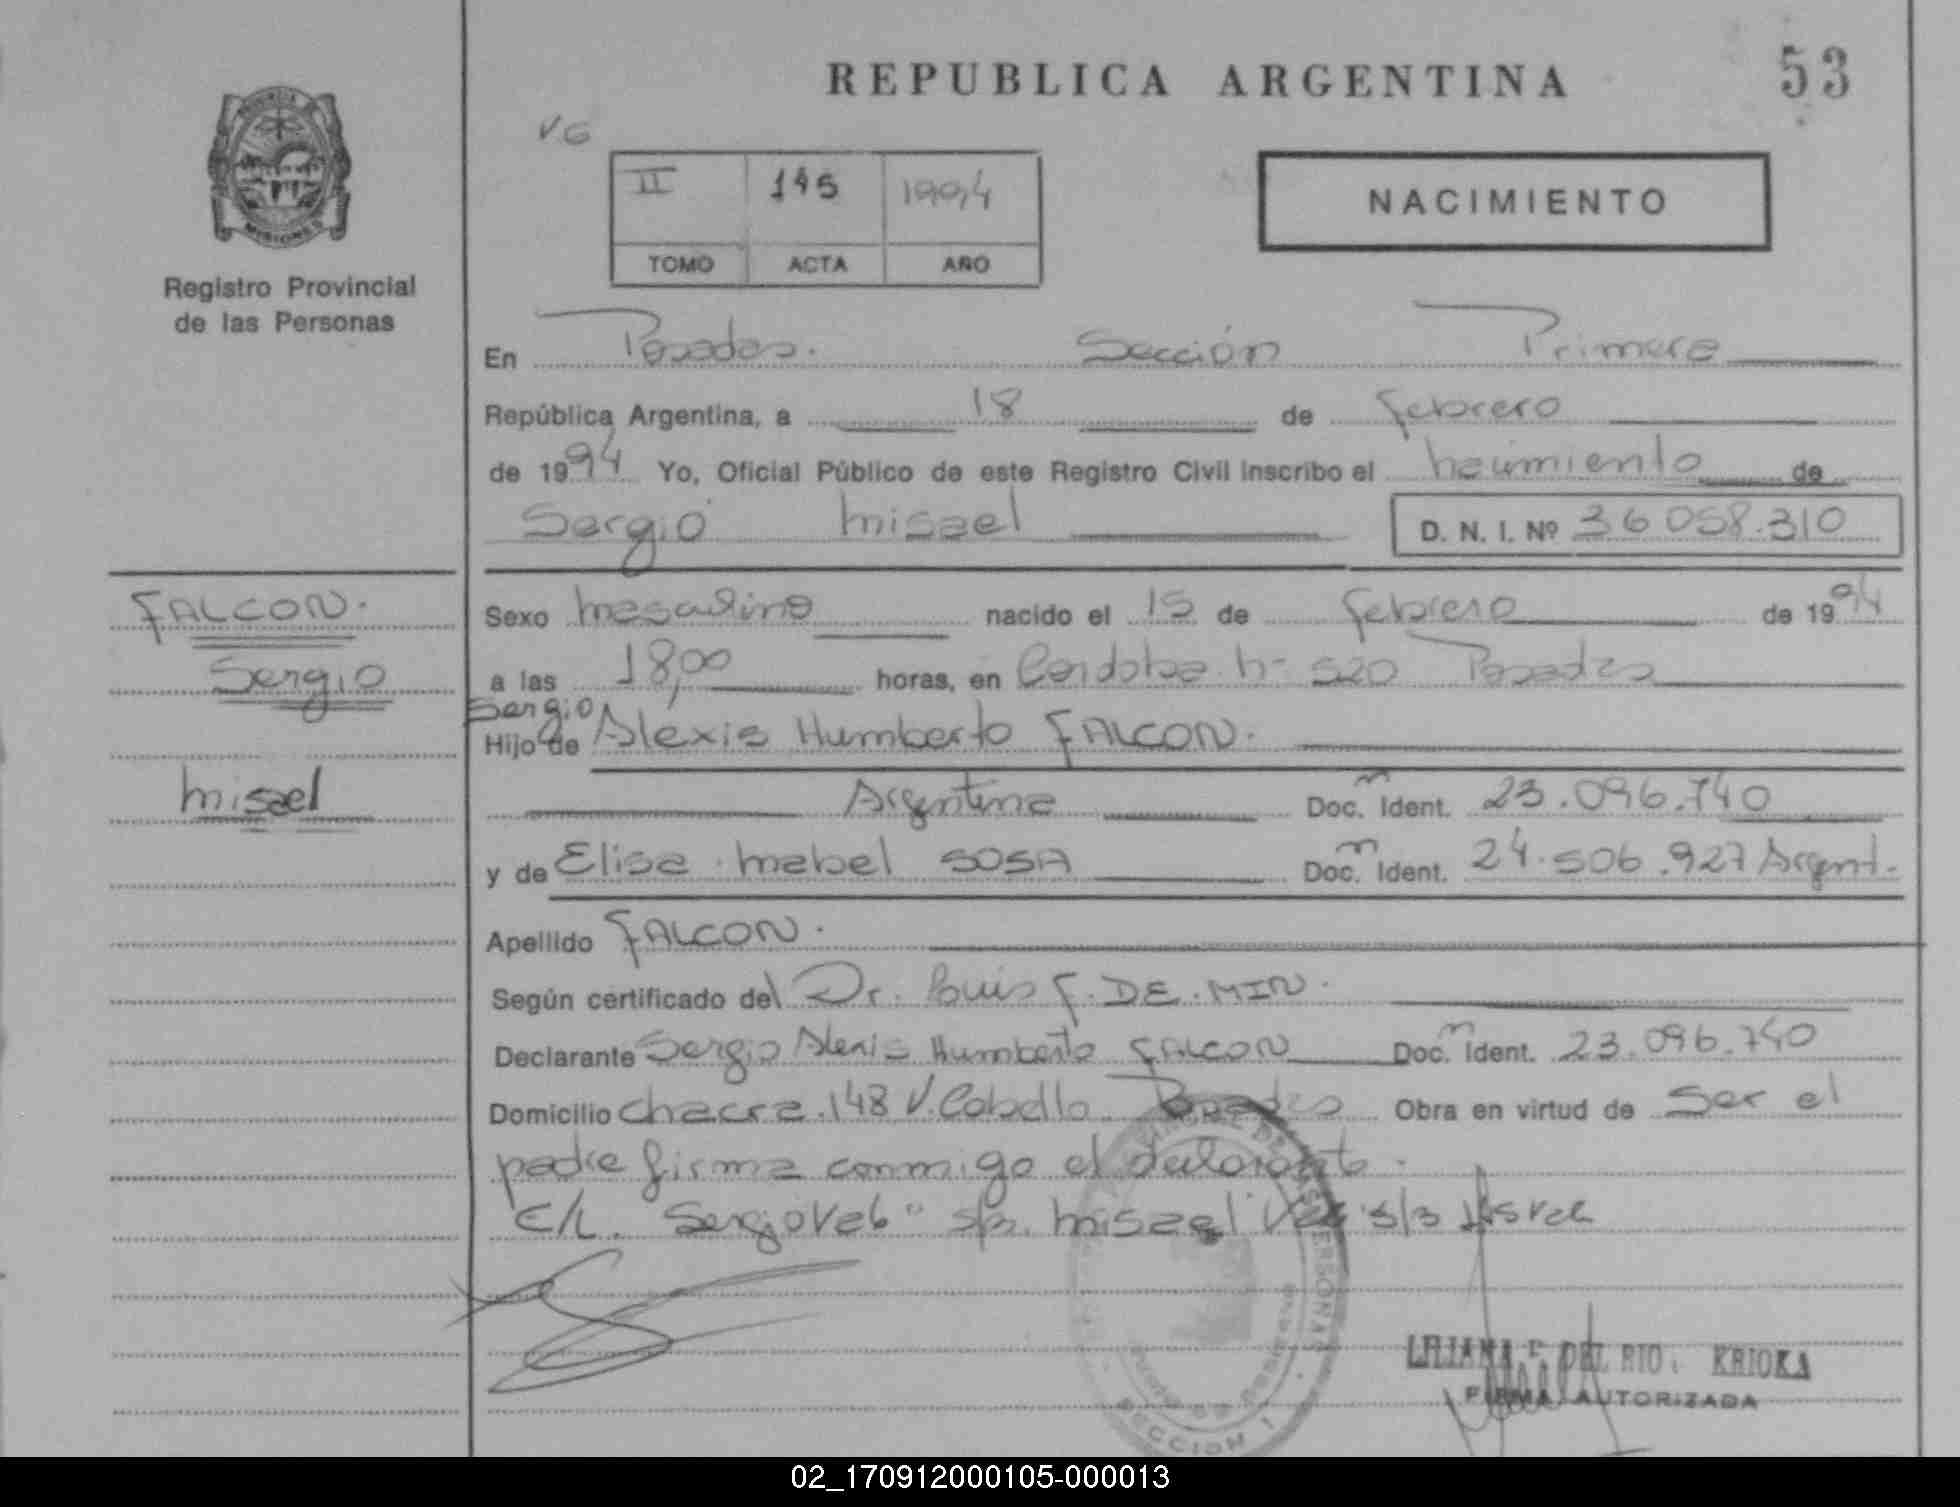 REPUBLICA ARGENTINA
53
VG
II 145 1994
TOMO ACTA AÑO
NACIMIENTO
MISIONES
Registro Provincial
de las Personas
En Posadas. Sección Primera
República Argentina, a 18 de febrero
de 1994 Yo, Oficial Público de este Registro Civil inscribo el nacimiento de
Sergio Misael D. N. I. Nº 36.058.310
FALCON.
Sergio
Misael
Sexo masculino nacido el 15 de febrero de 1994
a las 18,00 horas, en Cordoba Nº 520 Posadas
Sergio
Hijo de Alexis Humberto FALCON.
Argentina Doc. Ident. 23.096.740
y de Elisa Mabel SOSA Doc. Ident. 24.506.927 Argent.
Apellido FALCON.
Según certificado del Dr. Luis F. DE MIN.
Declarante Sergio Alexis Humberto FALCON Doc. Ident. 23.096.740
Domicilio Chacra 148 V. Cabello Posadas Obra en virtud de Ser el
padre firma conmigo el declarante.
E/L. "Sergio Vale" s/r. Misael Vale
LILIANA DEL RIO KRIOKA
FIRMA AUTORIZADA
SECCION 1
02_170912000105-000013